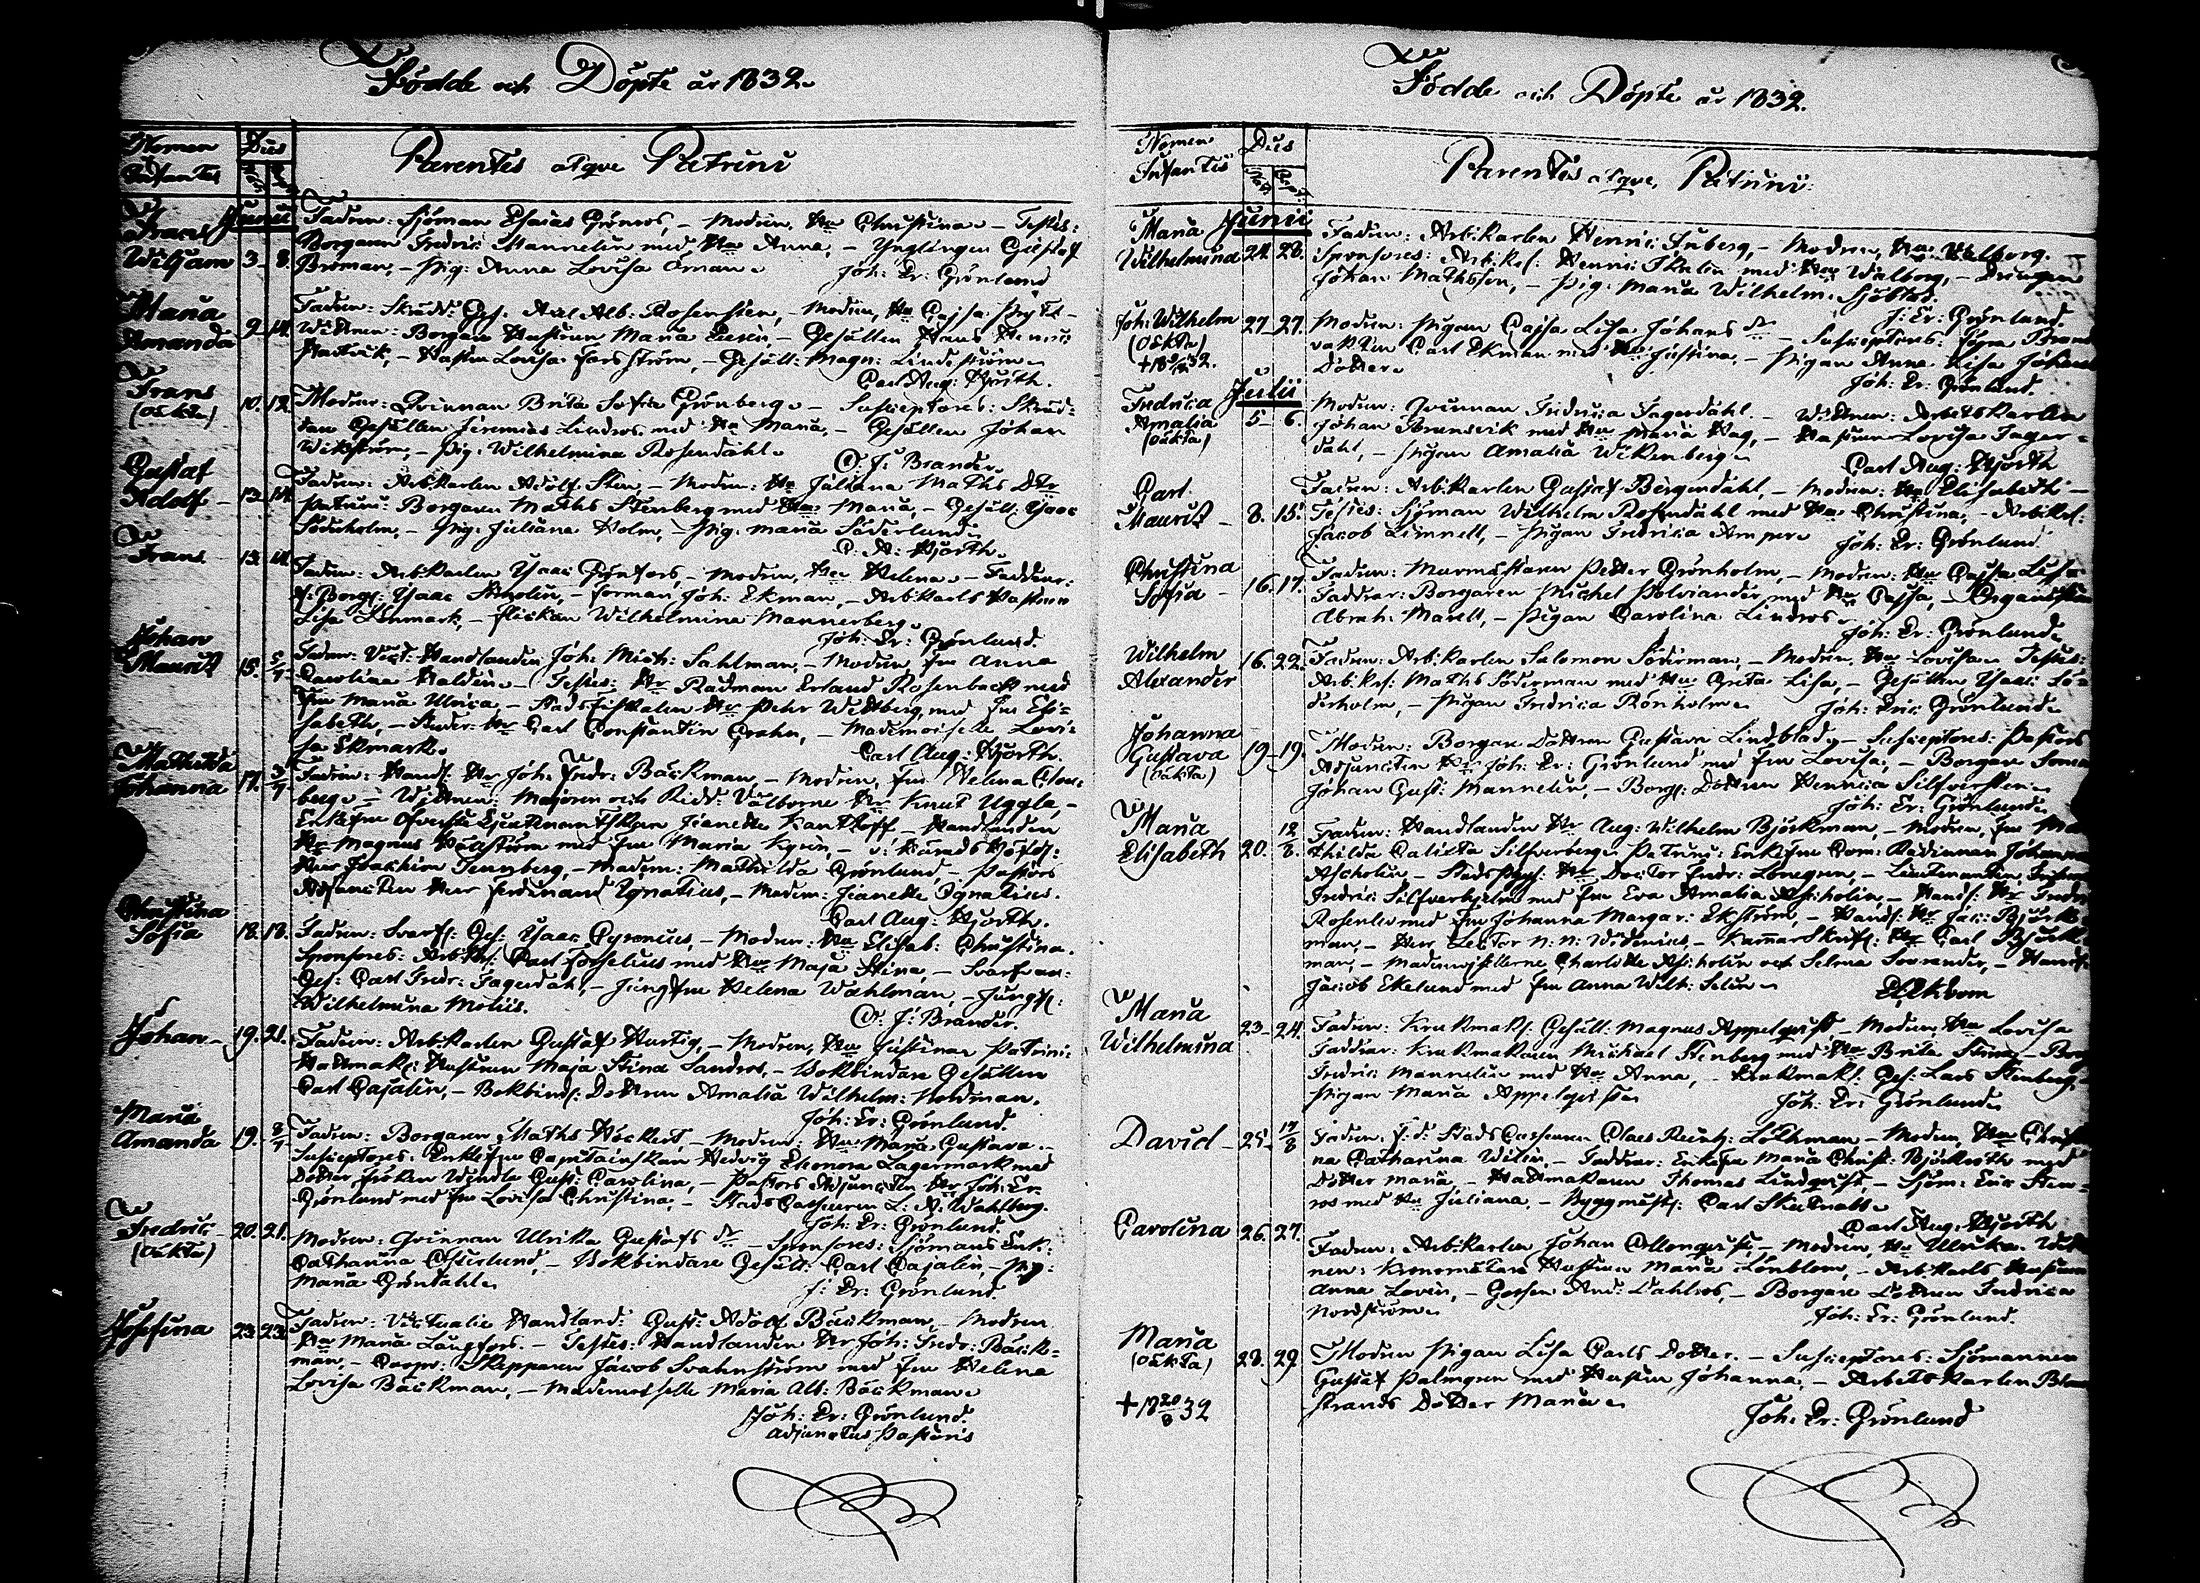 Födde och Döpte år 1832.
Nomen Infantis
Dies
Parentes atqve Patrini
Junii
Frans Wiljam 3 - 8. Fadren: Sjöman Esaias Grönros, - Modren, Hu Christina - Testes:
Borgaren Fredric Mannelin med Hu Anna, - Ynglingen Gustaf
Broman, - Pig: Anna Lovisa Öman.
Joh: Er: Grönlund
Maria Amanda 9 - 14. Fadren: Skrädd: Ges: Axel Alb: Rosensten, - Modren, Hu Cajsa
Wittnen: Borgare Hustrun Maria - Gesällen Hans Henric
- Hustru Lovisa Forsström, - Gesäll: Magn: Lindeström
Carl Aug: Hjorth.
Frans (oäkta) 10. 12. Modren: Qvinnan Brita Sofia Grönberg - Susceptores: Skräd-
dare Gesällen Jeremias Lindros med Hu Maria, - Gesällen Johan
Wikström, - Pig: Wilhelmina Rosendahl.
C: J: Brander.
Gustaf Adolf - 13 - 14. Fadren: Arb:karlen Adolf Sten, - Modren: Hu Juliana Maths Dtr
Patrini: Borgaren Maths Stenberg med Hu Maria, - Gesäll: Isac
Söderholm, - Pig: Juliana Holm, - Pig: Maria Söderlund
C. A: Hjorth.
Frans 13. 14. Fadren: Arb:karlen Isaac Grönfors, - Modren, Hu Helena - Faddrar:
f: Borg: Isaac - Forman Joh: Ekman, - Arb:karls Hustrun
Lisa Lönmark, - Flickan Wilhelmina Mannerberg.
Joh: Er: Grönlund.
Johan Mauritz 15. 5/7 Fadren: Vict: Handlanden Joh: Mich: Sahlman, - Modren, Fru Anna
Carolina Waldén - Testes: Hr Rådman Erland Rosenback med
Fru Maria Ulrica, - Stadsfiskalen Hr Pehr Wettberg med Fru Eli-
sabeth, - Stud: Hr Carl Constantin Crohn, - Mademoiselle Lovi-
sa Ekmark.
Carl Aug: Hjorth.
Mathilda Johanna 17. 3/7 Fadren: Handl: Hr Joh: Fredr: Bäckman, - Modren, Fru Helena
berg - Wittnen: Majoren och Ridd: Välborne Hr Knut Uggla, -
Enkefru Öfverste Lieutenantskan Jeanette Kanthoff - Handlanden
Hr Magnus med Fru Maria Kyrén, -
Herr Joachim Tennberg, - Madem: Mathilda Grönlund, - Pastors
Adjuncten Herr Ferdinand Ignatius, - Madem: Jeanette Ignatius.
Carl Aug: Hjorth.
Christina Sofia 18. 18. Fadren: Svarf: Ges: Isaac Cyronius, - Modren: Hu Elisab: Christina.
Sponsores: Arb:k: Carl Forselius med Hu Maja Stina, - Svarfvar:
Ges: Carl Fredr: Fagerdahl, - Jungfru Helena Wahlman, - Jungf:
Wilhelmina Moliis.
C: J: Brander.
Johan - 19. 21. Fadren: Arb:karlen Gustaf Hurtig, - Modren, Hu Justina Patrini:
Hattmak: Hustrun Maja Stina Sandros, - Bokbindare Gesällen
Carl Cajalin, - Bokbind: Dottren Amalia Wilhelm: Nordman.
Joh: Er: Grönlund.
Maria Amanda 19. 8/7 Fadren: Borgaren Maths Höckert, - Modren: Hu Maria Gustava.
Susceptores: Enkefru Capitainskan Hedvig Eleonora Lagermark med
Dotter Fröken Wendla Gust: Carolina, - Pastors Adjuncten Hr Joh: Er:
Grönlund med Fru Lovisa Christina, - Stads Casseuren L: A: Wahlberg.
Joh: Er: Grönlund.
Fredric (oäkta) 20. 21. Modren: Qvinnan Ulrika Gustafs dr - Sponsores: Sjömans Enk:
Catharina Österlund, - Bokbindare Gesäll: Carl Cajalin, - Pig:
Maria Gröndahl.
J: Er: Grönlund
Josefina 23. 23. Fadren: Victualie Handland: Gust: Adolf Bäckman, - Modren
Hu Maria Långfors. - Testes: Handlanden Hr Joh: Fredr: Bäck-
man, - Coopv: Skepparen Jacob Svahnström med Fru Helena
Lovisa Bäckman, - Mademoiselle Maria Alb: Bäckman.
Joh: Er: Grönlund.
Adjunctus Pastoris
Födde och Döpte år 1832.
Nomen Infantis
Dies
Parentes atqve Patrini.
Junii
Maria Wilhelmina 24. 28. Fadren: Arb:karlen Henric Friberg, - Modren, Hu Walborg.
Sponsores: Arb:k: Henric Thulin med Hu Walborg, - Drängen
Johan Mathsson, - Pig: Maria Wilhelm: Sjöblad.
J: Er: Grönlund.
Joh: Wilhelm (oäkta) 27 - 27. Modren: Pigan Cajsa Lisa Johans dr - Susceptores: Förra Brand
vakten Carl Ekman med Hu Justina, - Pigan Anna Lisa Johans
Dotter.
Joh: Er: Grönlund.
Julii
Fredrica Amalia (oäkta) 5 - 6. Modren: Qvinnan Fredrica Fagerdahl. - Wittnen: Arbetskarlen
Johan Brunsvik med Hu Maria Hag, - Hustrun Lovisa Fager-
dahl, - Pigan Amalia Wikenberg.
Carl Aug: Hjorth
Carl Mauritz - 8. 15. Fadren: Arb:karlen Gustaf Bergendahl, - Modren: Hu Elisabeth -
Testes: Sjöman Wilhelm Rosendahl med Hu Christina, - Arb:k:
Jacob Limnell, - Pigan Fredrica Amper.
Joh: Er: Grönlund.
Christina Sofia - 16. 17. Fadren: Murmästaren Petter Grönholm, - Modren: Hu Cajsa Lisa
Faddrar: Borgaren Michel Polviander med Hu Cajsa, - Organisten
Abrah: Marell, - Pigan Carolina Lindros.
Joh: Er: Grönlund.
Wilhelm Alexander 16. 22. Fadren: Arb:karlen Salomon Söderman, - Modren, Hu Lovisa. Testes:
Arb:k: Maths Söderman med Hu Greta Lisa, - Gesällen Isaac Sö-
derholm, - Pigan Fredrica Rönholm.
Joh: Eric Grönlund.
Johanna Gustava (oäkta) 19 - 19. Modren: Borgare Dottren Gustava Lindblad, - Susceptores: Pastors
Adjuncten Hr Joh: Er: Grönlund med Fru Lovisa, - Borgare Sonen
Johan Gust: Mannelin, - Borg: Dottren Henrica Silfversten.
Joh: Er: Grönlund.
Maria Elisabeth 20. 12/8. Fadren: Handlanden Hr Aug: Wilhelm Björkman, - Modren, Fru Ma
thilda Calixta Silfverberg. Patrini: Enkefru Com: Rådinnan Johanna
Ascholin - Stadsphys: Hr Doctor Fredr: Lönegren, - Lieutenanten
Fredric Silfverhjelm med Fru Eva Amalia Ascholin, - Handl: Hr Fredr:
Rosenlew med Fru Johanna Margar: Ekström, - Handl: Hr Jac: Björk-
man, - Herr Lector N: N: Widenius, - KammarSkrif: Hr Carl Björk-
man, - Mademoisellerne Charlotte Ascholin och Selma Sovander, - Handl:
Jacob Ekelund med Fru Anna Wilh: Selin.
Maria Wilhelmina 23 - 24. Fadren: Krukmak: Gesäll: Magnus Appelqvist - Modren Hu Lovisa
Faddrar: Krukmakaren Michael Stenberg med Hu Brita Stina, - Borg
Fredric Mannelin med Hu Anna, - Krukmak: Ges: Lars Stenberg, -
Pigan Maria Appelqvist.
Joh: Er: Grönlund.
David - 25 - 17/8 Fadren: f: d: Stads Casseuren Claes Reinh: Löthman - Modren, Hu Christi
na Catharina Witlin, - Faddrar: Enkefru Maria Christ: Björkroth med
Dotter Maria, - Hattmakaren Thomas Lindqvist, - Sjöm: Eric Sten-
ros med Hu Juliana, - Byggmäst: Carl Skutnabb.
Carl Aug: Hjorth
Carolina 26. 27. Fadren: Arb:karlen Johan Allenqvist, - Modren, Hu Ulrika. Witt
nen: Kronomätare Hustrun Maria Lönblom, - Arb:karls Hustrun
Anna Lovin, - Gossen And: Dahlros, - Borgare Dottren Fredrica
Nordström.
Joh: Er: Grönlund.
Maria (oäkta) 28. 29. Modren Pigan Lisa Carls Dotter. - Susceptores: Sjömannen
Gustaf Palmgren med Hustru Johanna, - Arbetskarlen
strands Dotter Maria.
+18 20/8 32
Joh: Er: Grönlund